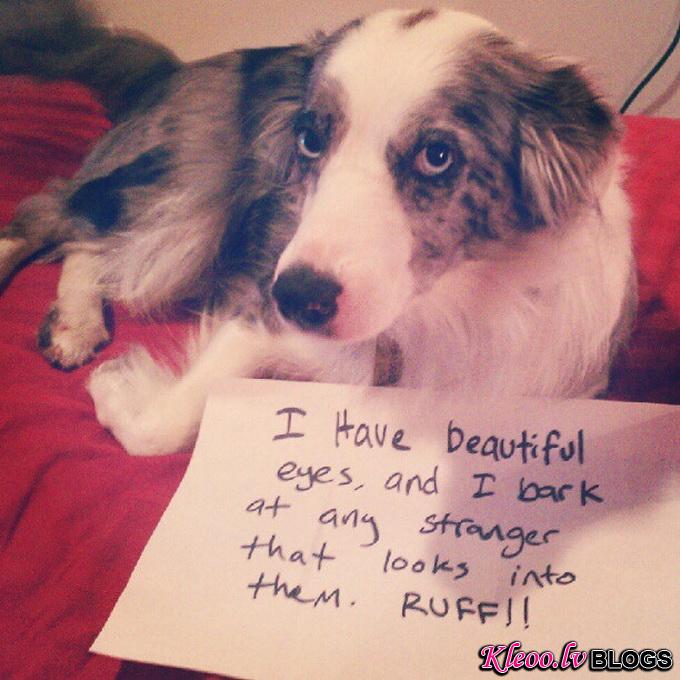 I Have beautiful
eyes, and I bark
at any stranger
that looks into
them. RUFF!!
Kleoo.lv BLOGS